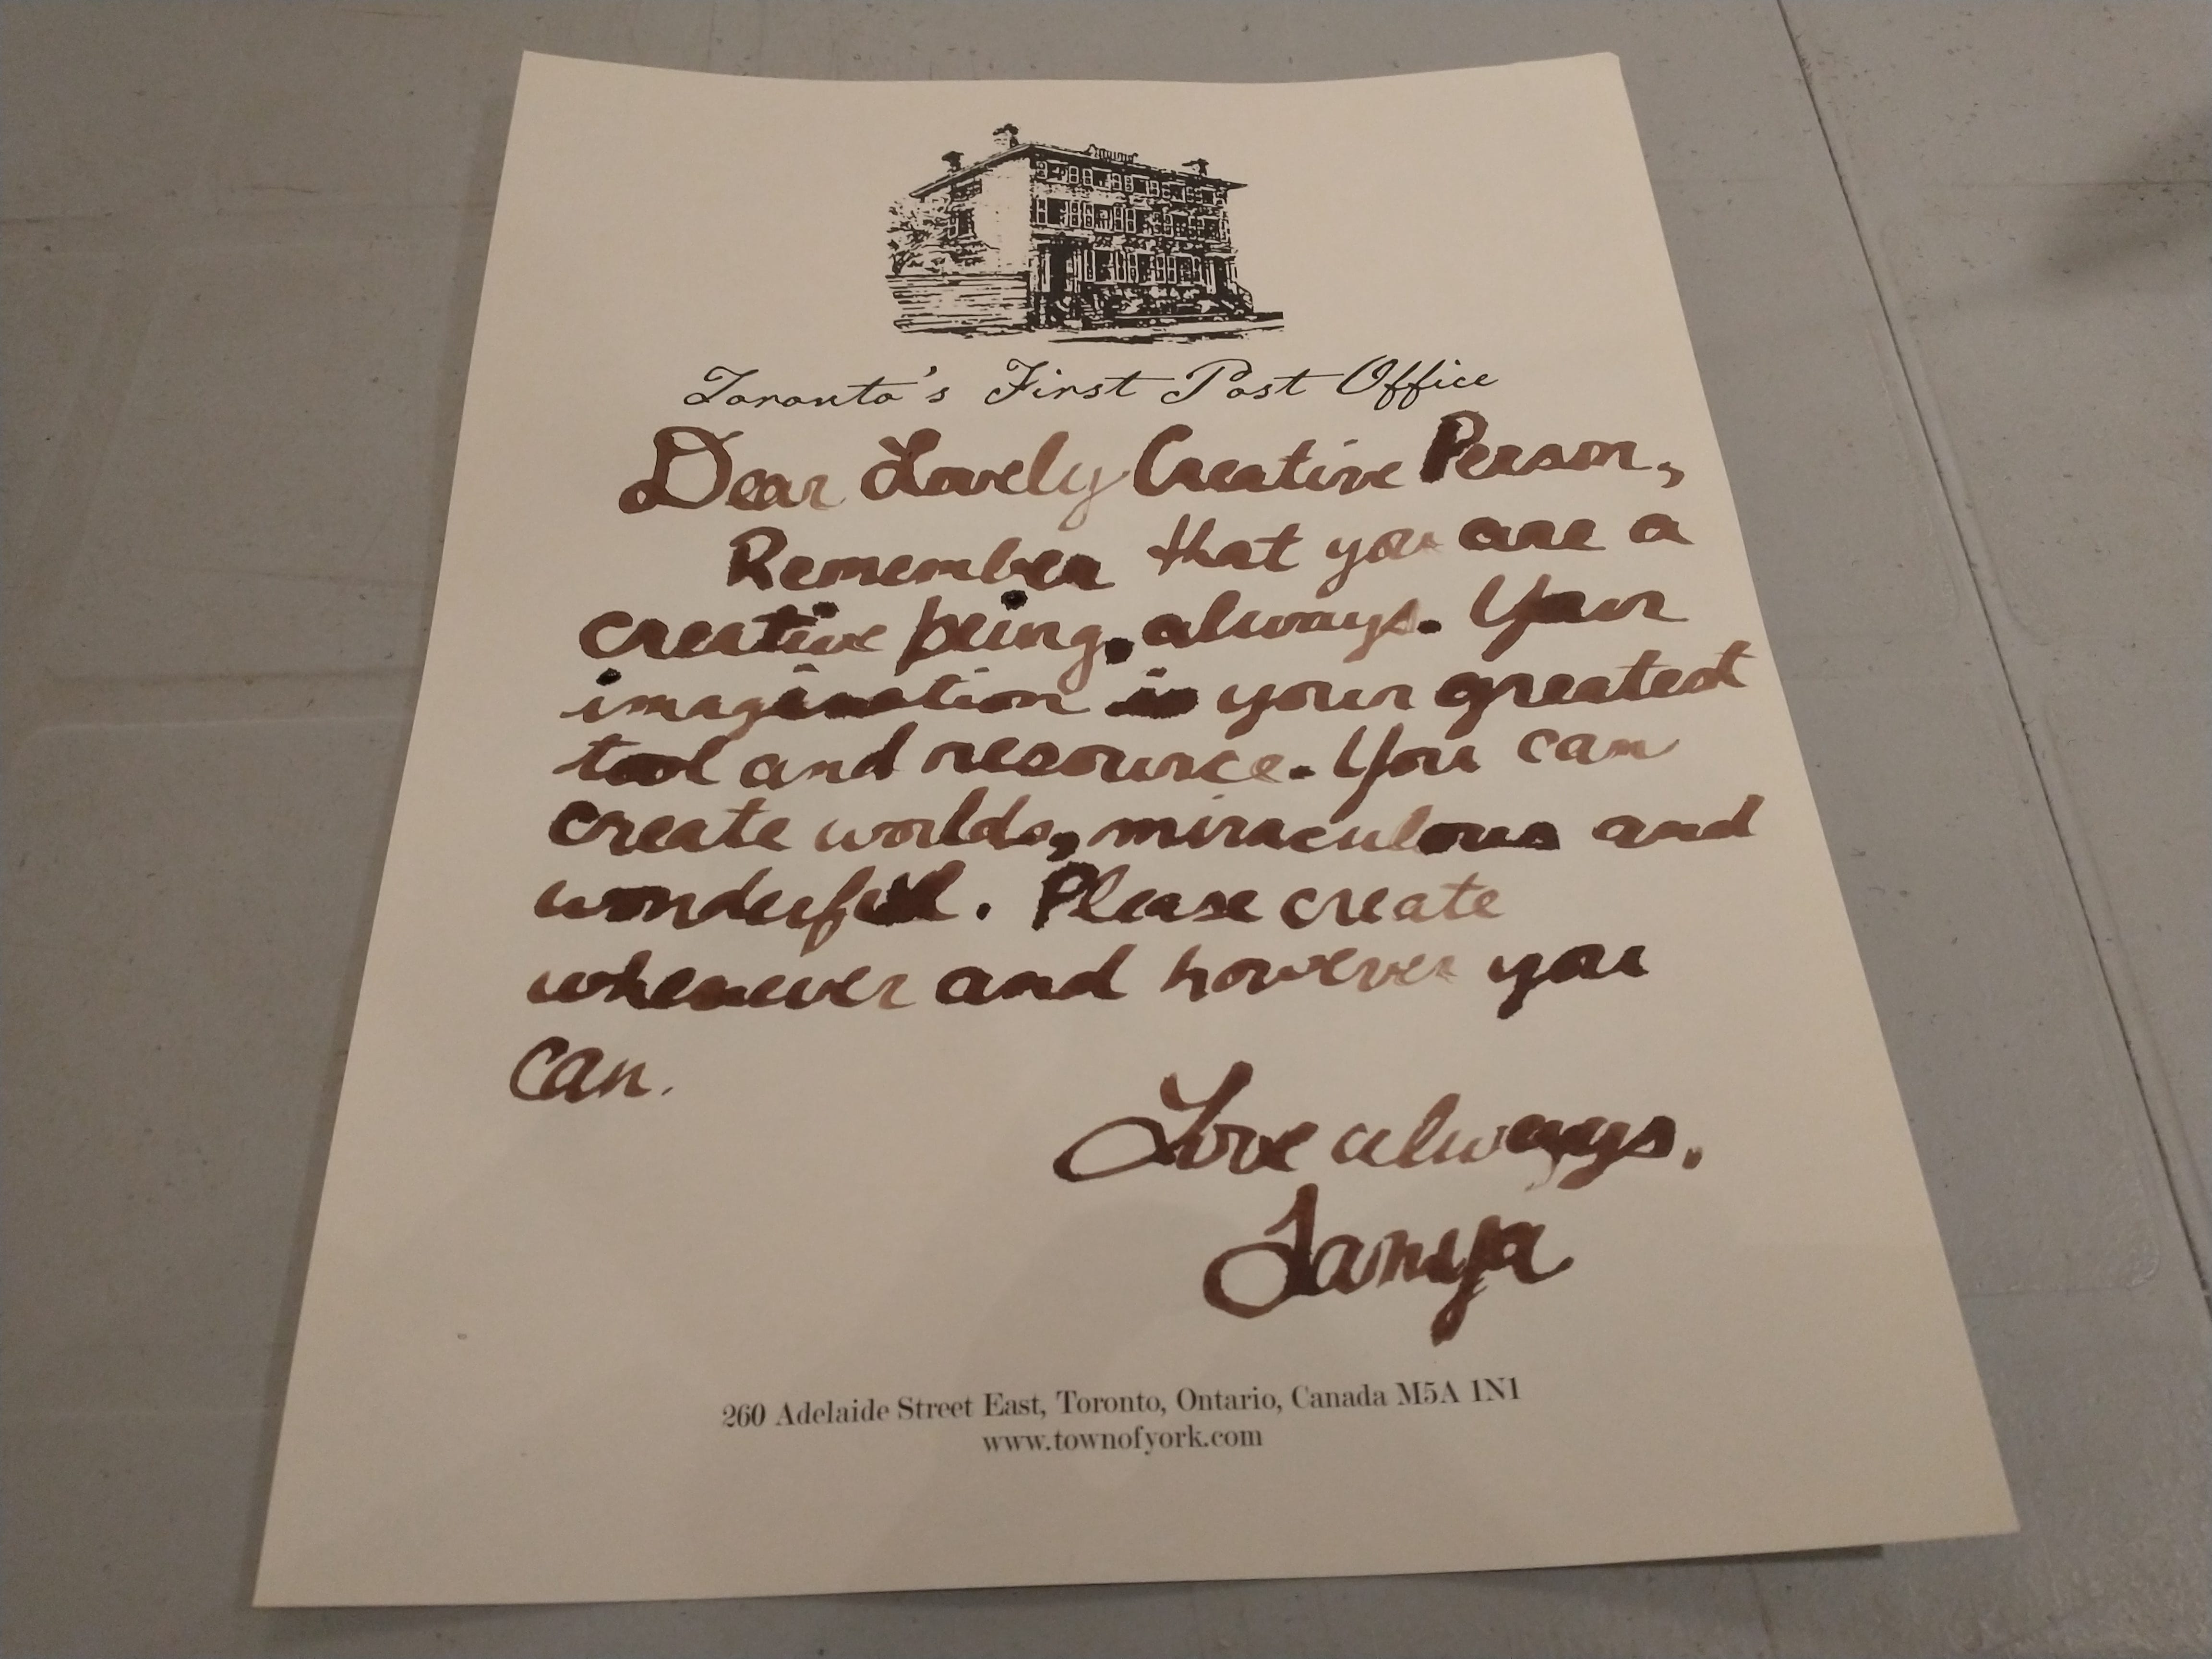 Toronto's First Post Office
Dear Lovely Creative Person,
Remember that you are a
creative being, always. Your
imagination is your greatest
tool and resource. You can
create worlds, miraculous and
wonderful. Please create
whenever and however you
can.
Love always,
Tanya
260 Adelaide Street East, Toronto, Ontario, Canada M5A 1N1
www.townofyork.com